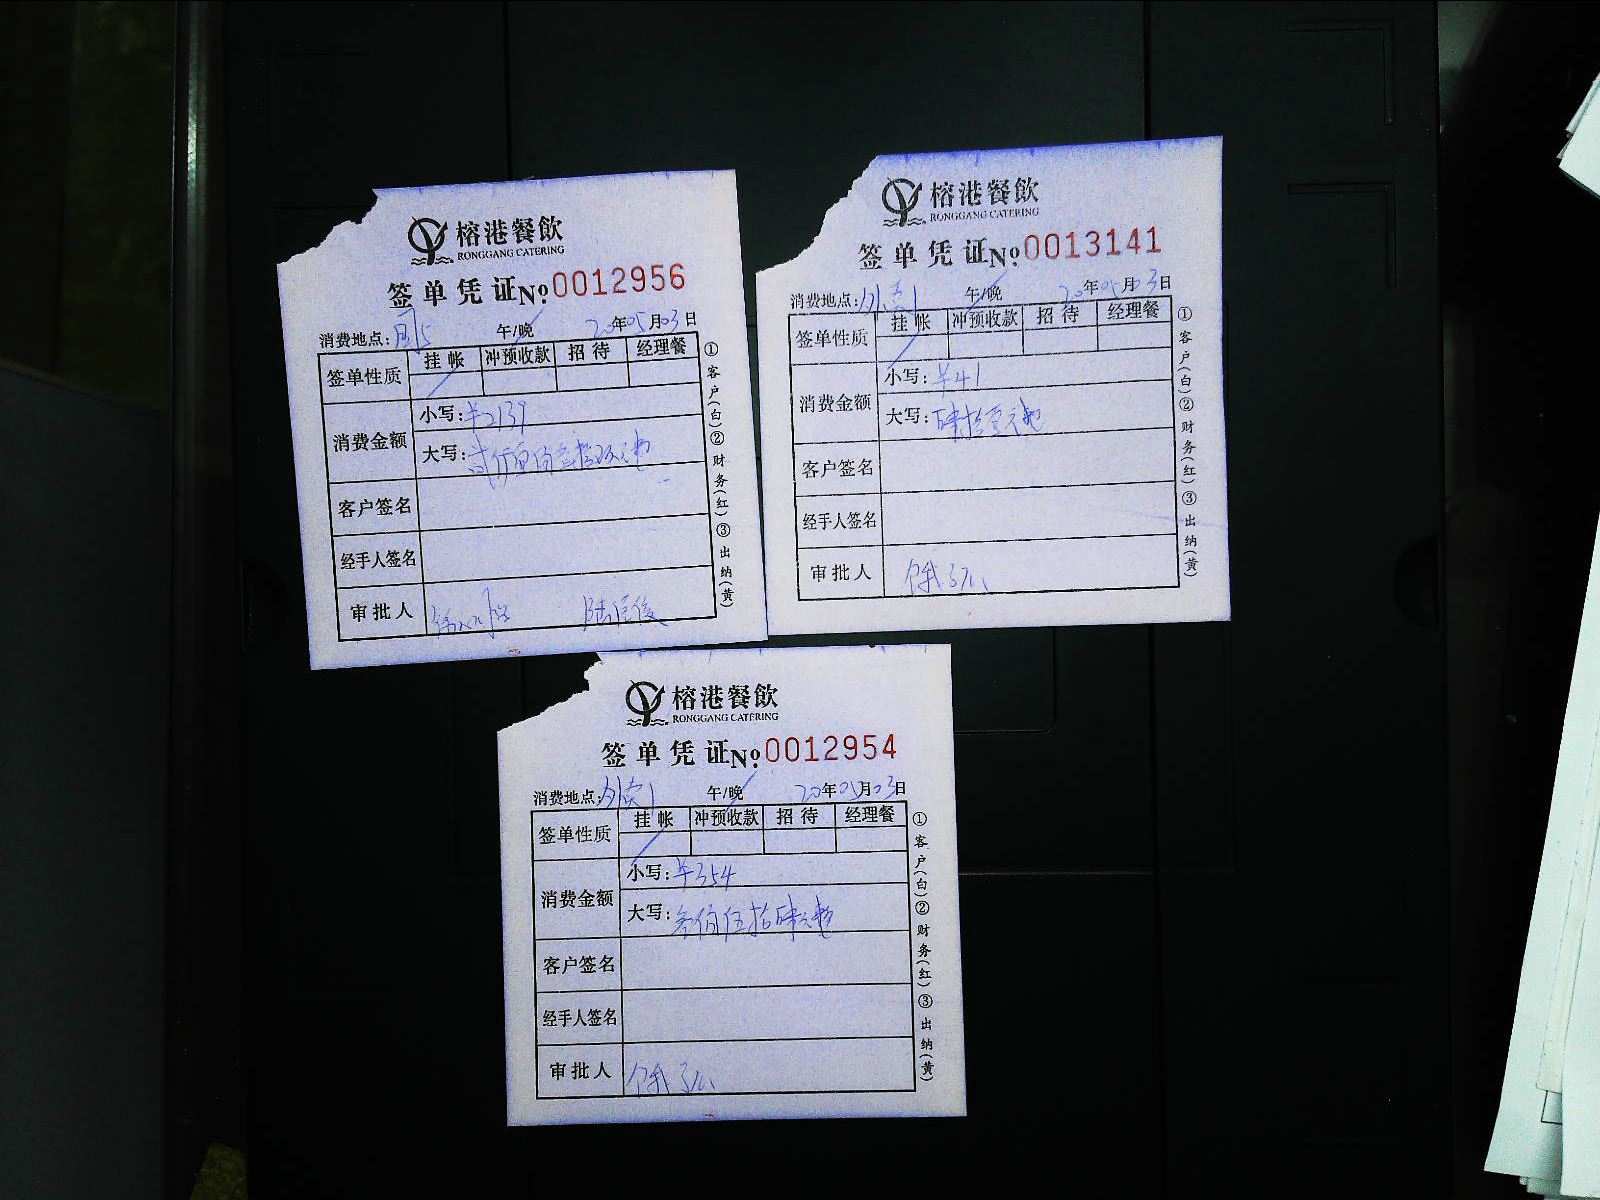 榕港餐飲
RONGGANG CATERING
签单凭证 №0012956
消费地点: 午/晚 20年05月03日
签单性质 挂帐 冲预收款 招待 经理餐
消费金额 小写:¥2139
大写:
客户签名
经手人签名
审批人
①客户(白)②财务(红)③出纳(黄)
榕港餐飲
RONGGANG CATERING
签单凭证 №0013141
消费地点:外卖1 午/晚 20年05月03日
签单性质 挂帐 冲预收款 招待 经理餐
消费金额 小写:¥41
大写:肆拾壹元整
客户签名
经手人签名
审批人 饿了么
①客户(白)②财务(红)③出纳(黄)
榕港餐飲
RONGGANG CATERING
签单凭证 №0012954
消费地点:外卖1 午/晚 20年05月03日
签单性质 挂帐 冲预收款 招待 经理餐
消费金额 小写:¥354
大写:叁佰伍拾肆元整
客户签名
经手人签名
审批人 饿了么
①客户(白)②财务(红)③出纳(黄)